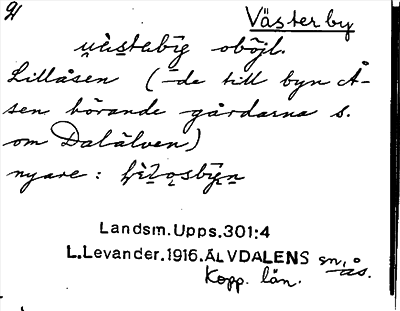 21
Västerby
oböjl.
Lillåsen (=de till byn Å-
sen hörande gårdarna s.
om Dalälven)
nyare:
Landsm.Upps.301:4
L.Levander.1916.ÄLVDALENS sn, ås.
Kopp. län.